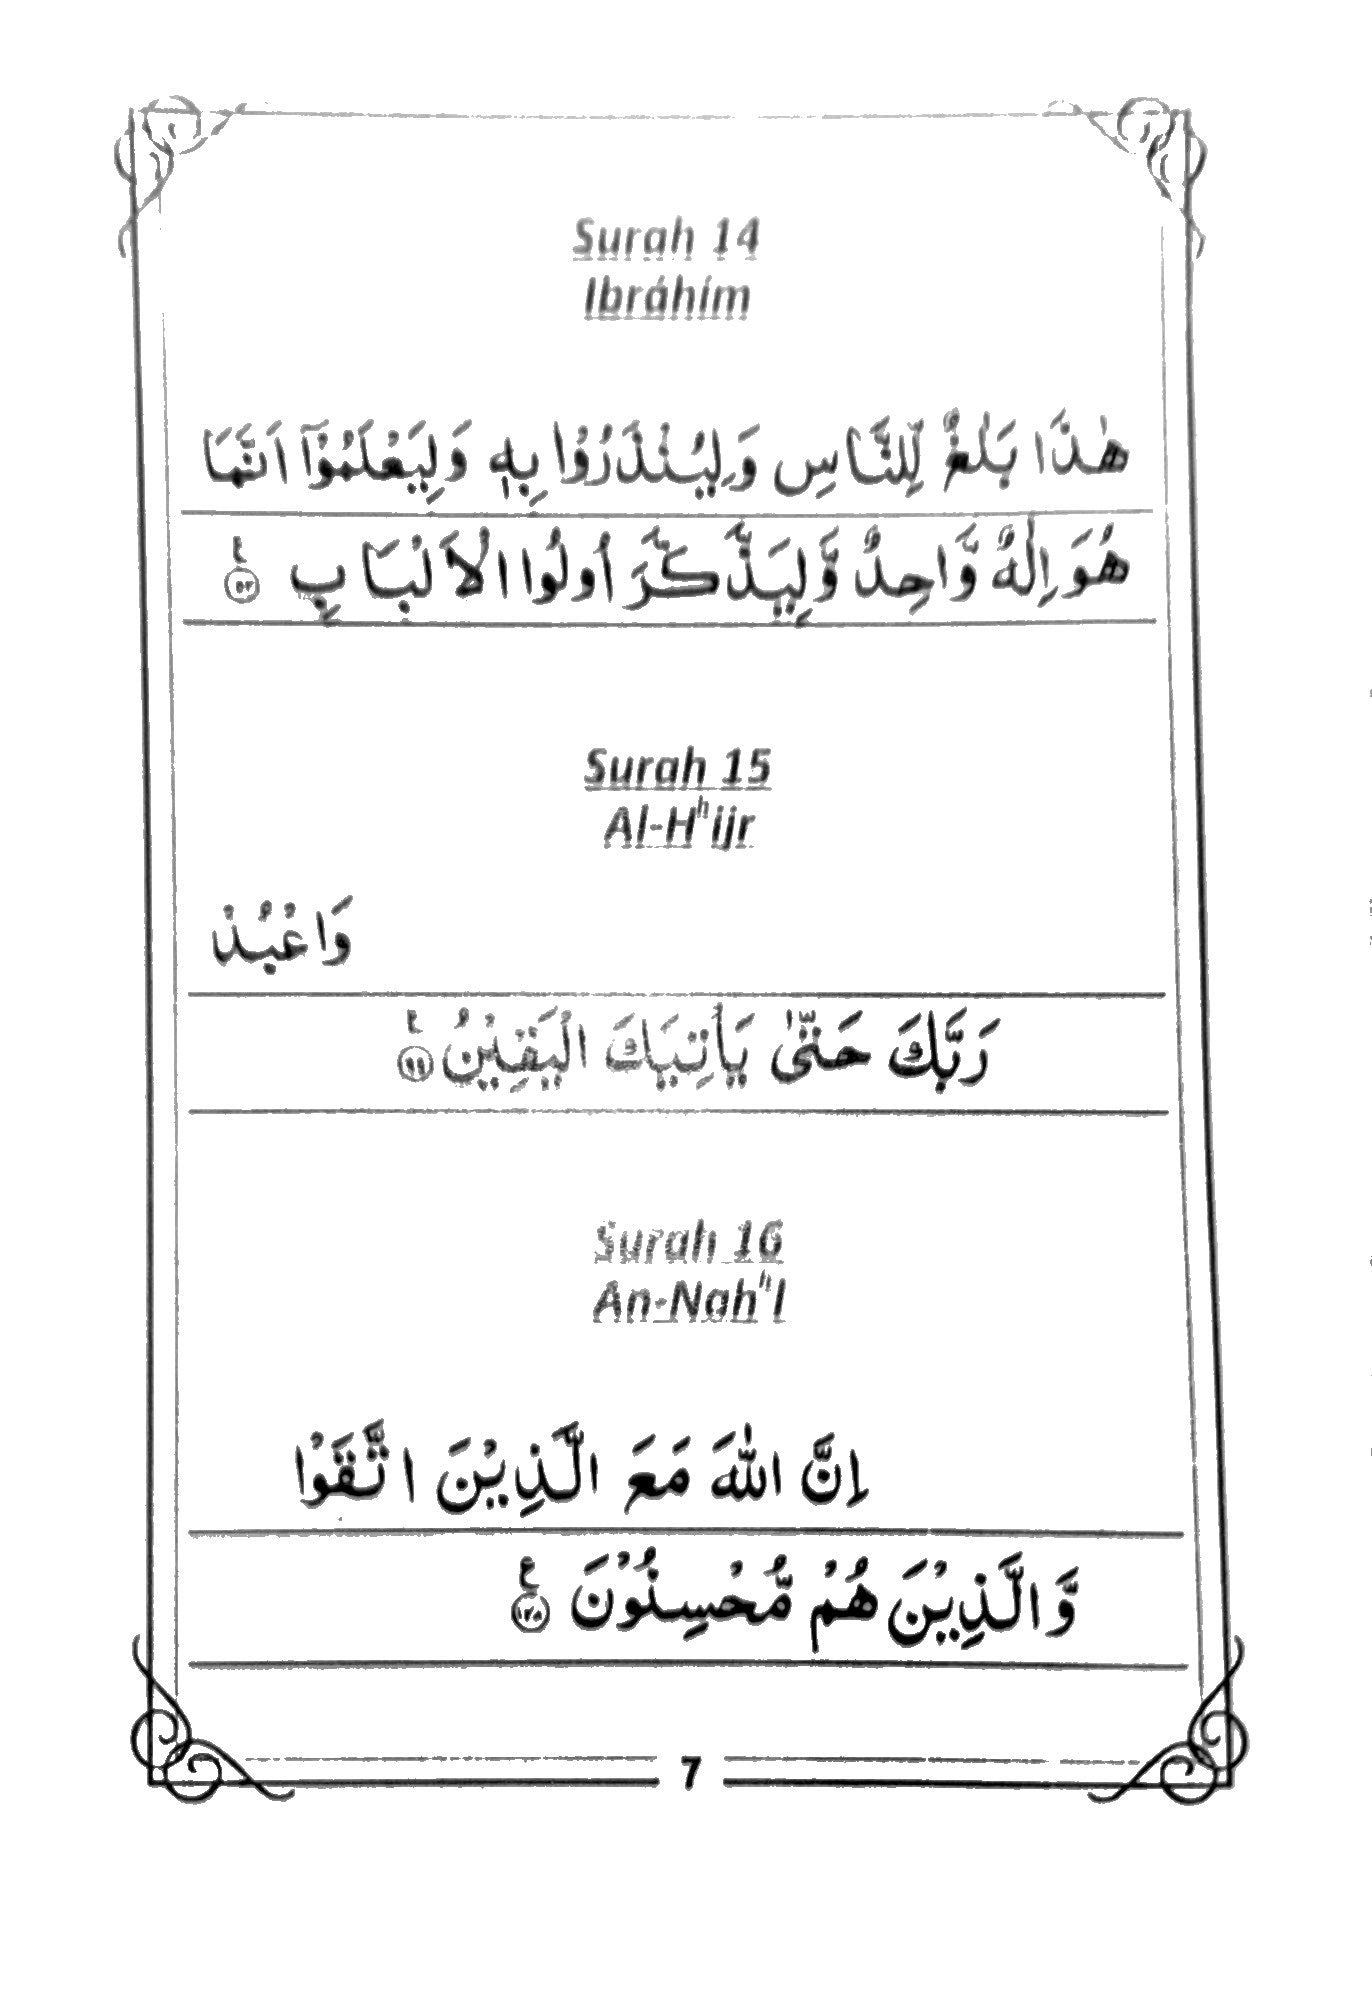 Surah 14
Ibráhím
هٰذَا بَلٰغٌ لِّلنَّاسِ وَلِيُنْذَرُوْا بِهٖ وَلِيَعْلَمُوْٓا اَنَّمَا
هُوَ اِلٰهٌ وَّاحِدٌ وَّلِيَذَّكَّرَ اُولُوا الْاَلْبَابِ ﴿۵۲﴾ ع
Surah 15
Al-Hʰijr
وَاعْبُدْ
رَبَّكَ حَتّٰى يَأْتِيَكَ الْيَقِيْنُ ﴿۹۹﴾ ع
Surah 16
An-Nahʰl
اِنَّ اللّٰهَ مَعَ الَّذِيْنَ اتَّقَوْا
وَّالَّذِيْنَ هُمْ مُّحْسِنُوْنَ ﴿۱۲۸﴾ ع
7